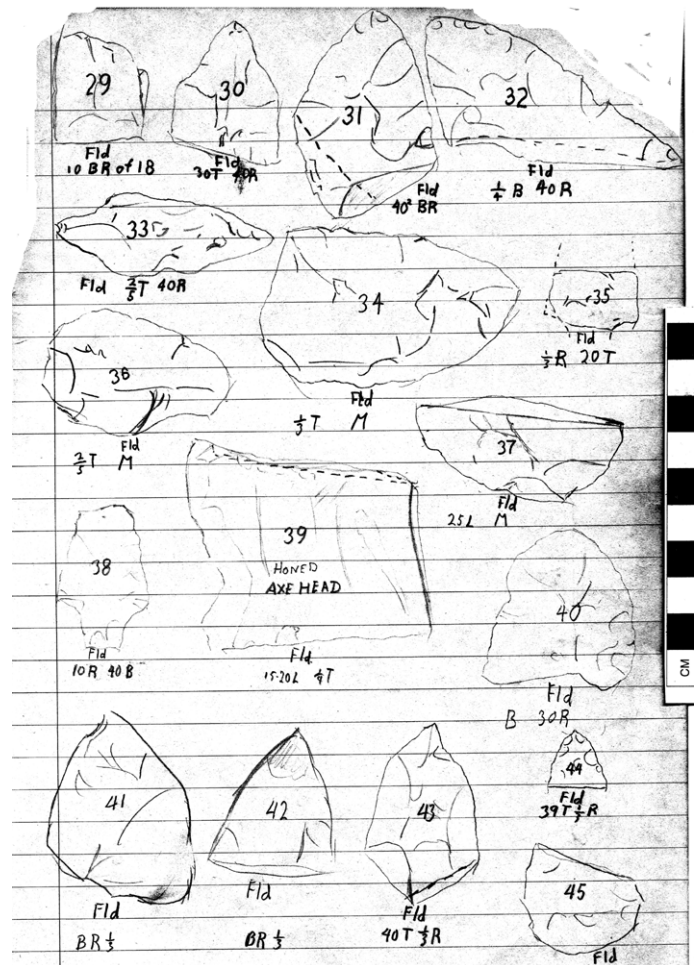 29
Fld
10 BR of 18
30
Fld
30T 40R
31
Fld
40² BR
32
Fld
¼ B 40R
33
Fld ⅖T 40R
34
Fld
⅓T M
35
Fld
⅓R 20T
36
Fld
⅖T M
37
Fld
25L M
38
Fld
10R 40B
39
HONED
AXE HEAD
Fld
15-20L T
40
Fld
B 30R
41
Fld
BR ⅓
42
Fld
BR ⅓
43
Fld
40T ⅓R
44
Fld
39T ⅓R
45
Fld
CM